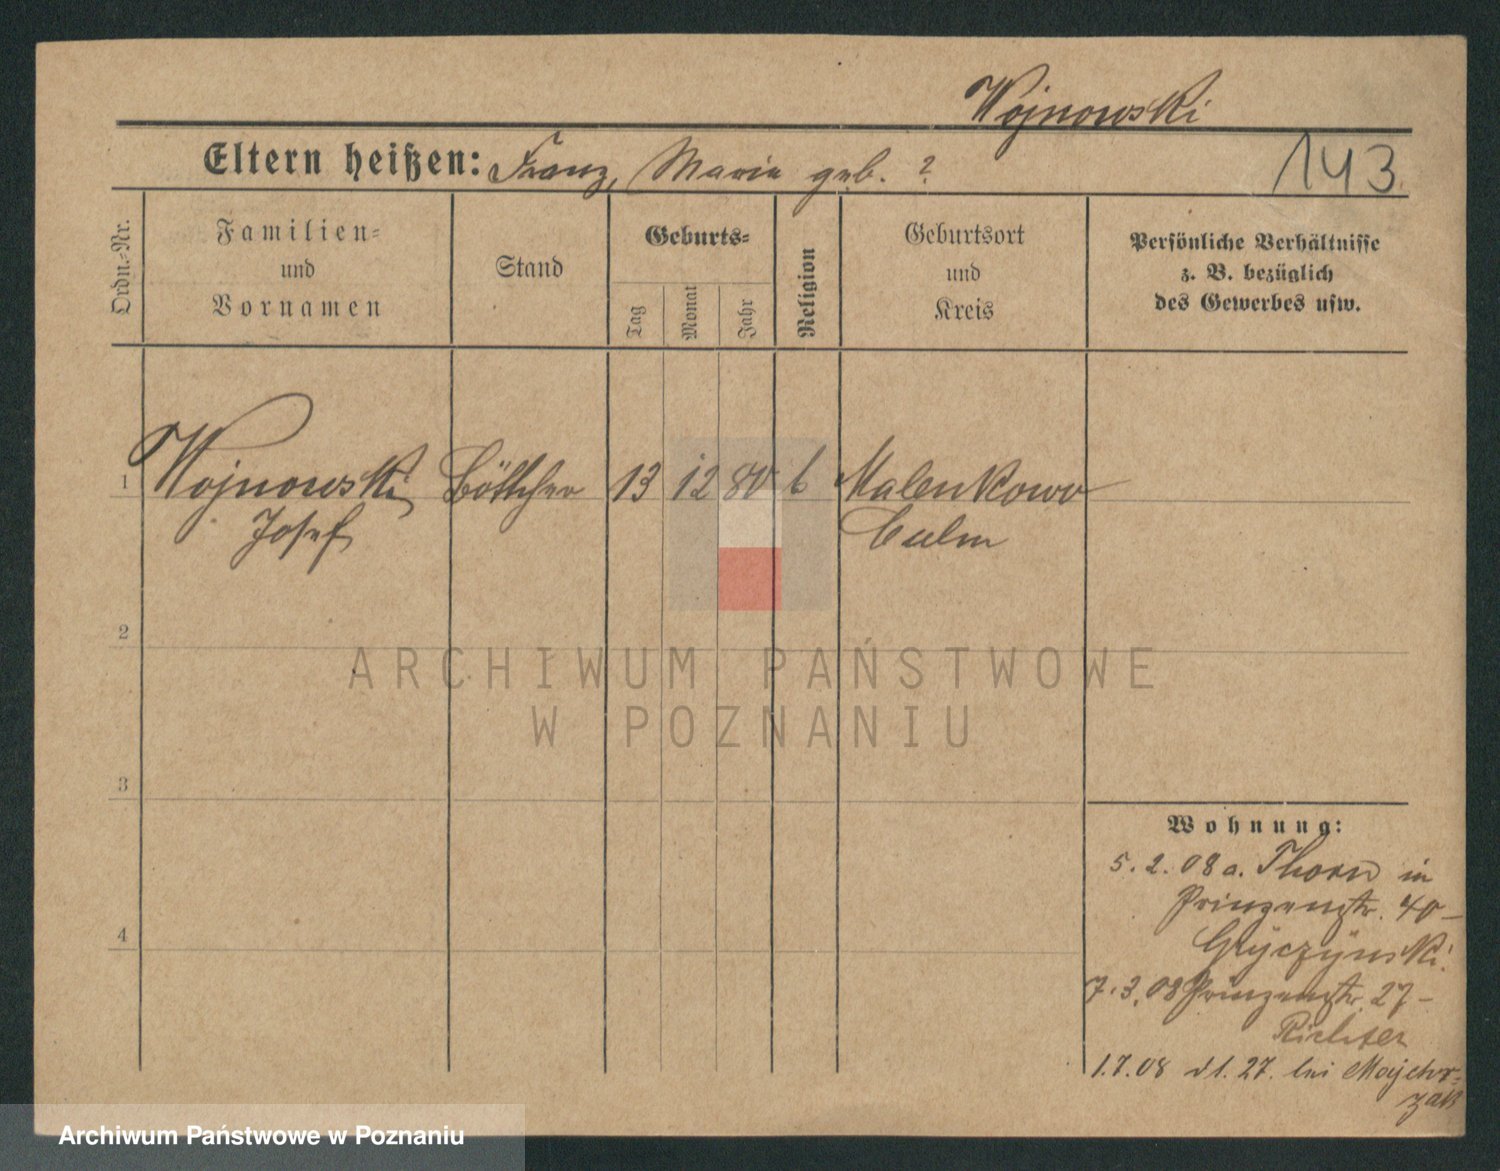 Wojnowski
Eltern heißen: Franz, Marie geb. ?
143
Ordn.-Nr.
Familien-
und
Vornamen
Stand
Geburts-
Tag
Monat
Jahr
Religion
Geburtsort
und
Kreis
Persönliche Verhältnisse
z. B. bezüglich
des Gewerbes usw.
1 Wojnowski Böttcher 13 12 80 Malenkowo
Josef Culm
2
3
4
ARCHIWUM PAŃSTWOWE
W POZNANIU
Wohnung:
5. 2. 08 a. Thorn in
Prinzenstr. 40 -
Gryczynski.
7. 3. 08 Prinzenstr. 27 -
Richter
1. 7. 08 27. bei Majchr-
zak
Archiwum Państwowe w Poznaniu